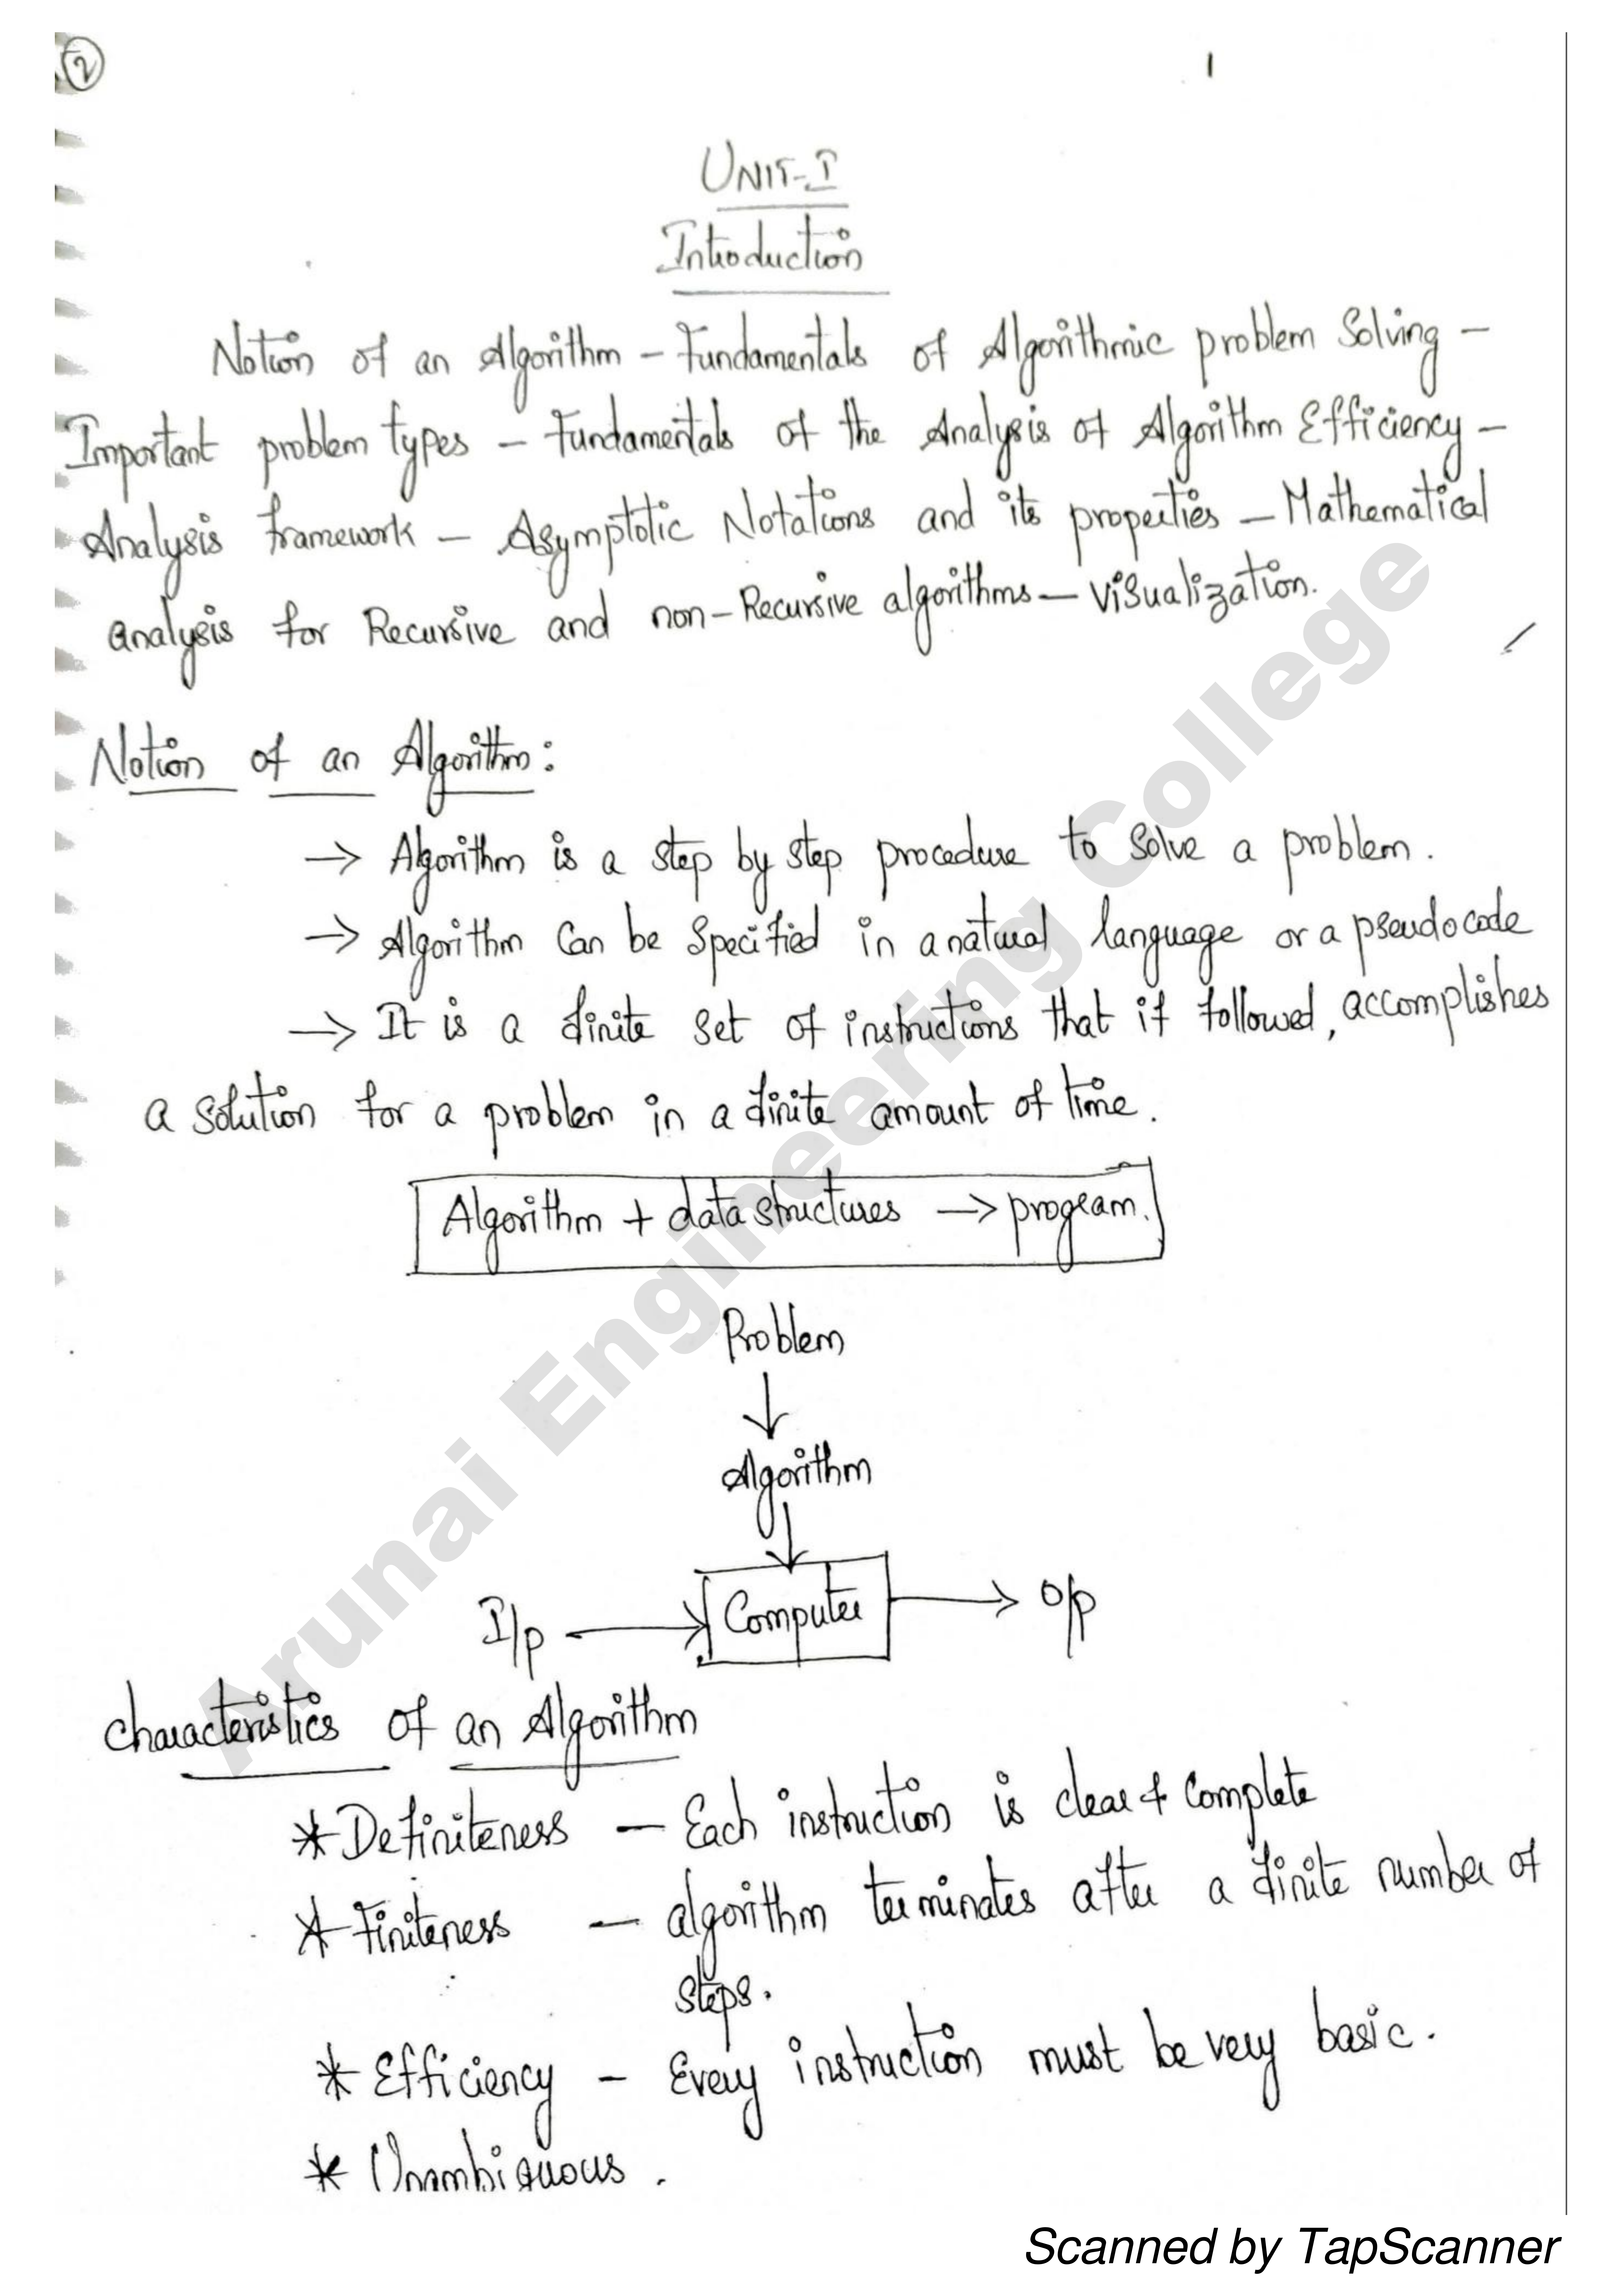 2
1
UNIT-I
Introduction
Notion of an Algorithm – Fundamentals of Algorithmic problem Solving –
Important problem types – Fundamentals of the Analysis of Algorithm Efficiency –
Analysis framework – Asymptotic Notations and its properties – Mathematical
analysis for Recursive and non-Recursive algorithms – visualization.
Notion of an Algorithm:
→ Algorithm is a step by step procedure to solve a problem.
→ Algorithm can be specified in a natural language or a pseudocode
→ It is a finite set of instructions that if followed, accomplishes
a solution for a problem in a finite amount of time.
Algorithm + data structures → program.
Problem
↓
Algorithm
↓
I/p → Computer → O/p
Characteristics of an Algorithm
* Definiteness – Each instruction is clear & complete
* Finiteness – algorithm terminates after a finite number of
steps.
* Efficiency – Every instruction must be very basic.
* Unambiguous.
Arunai Engineering College
Scanned by TapScanner